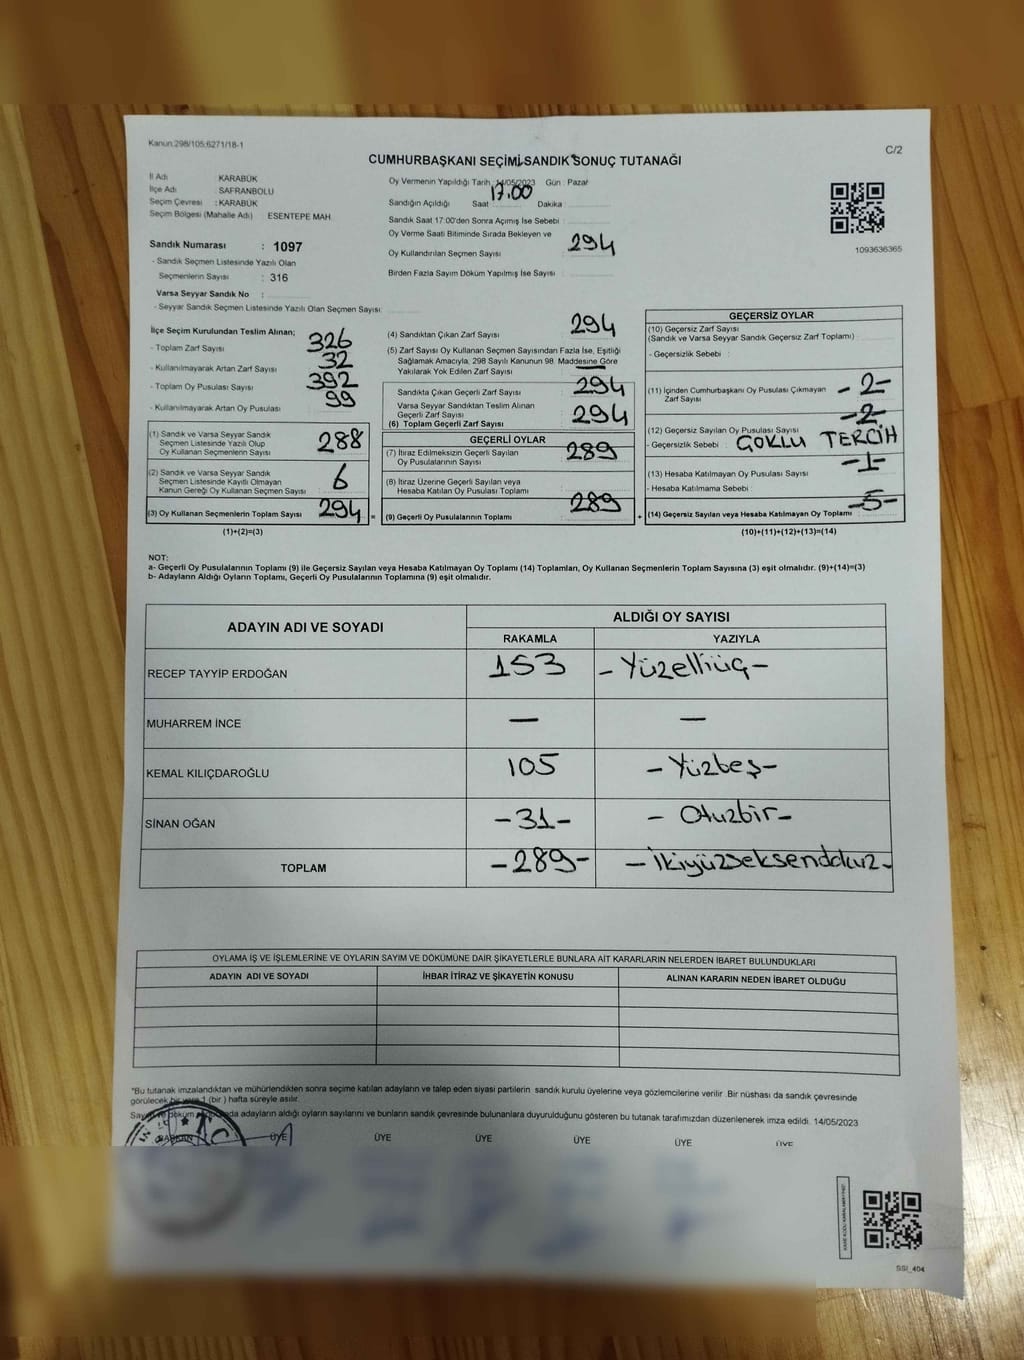 Kanun:298/105;6271/18-1
C/2
CUMHURBAŞKANI SEÇİMİ SANDIK SONUÇ TUTANAĞI
İl Adı : KARABÜK
İlçe Adı : SAFRANBOLU
Seçim Çevresi : KARABÜK
Seçim Bölgesi (Mahalle Adı) ESENTEPE MAH.
Sandık Numarası : 1097
- Sandık Seçmen Listesinde Yazılı Olan
Seçmenlerin Sayısı : 316
Varsa Seyyar Sandık No :
- Seyyar Sandık Seçmen Listesinde Yazılı Olan Seçmen Sayısı:
Oy Vermenin Yapıldığı Tarih 14/05/2023 Gün : Pazar
Sandığın Açıldığı Saat 17.00 Dakika :
Sandık Saat 17:00'den Sonra Açımış İse Sebebi :
Oy Verme Saati Bitiminde Sırada Bekleyen ve
Oy Kullandırılan Seçmen Sayısı 294
Birden Fazla Sayım Döküm Yapılmış İse Sayısı :
1093636365
İlçe Seçim Kurulundan Teslim Alınan;
- Toplam Zarf Sayısı 326
- Kullanılmayarak Artan Zarf Sayısı 32
- Toplam Oy Pusulası Sayısı 392
- Kullanılmayarak Artan Oy Pusulası 99
(1) Sandık ve Varsa Seyyar Sandık
Seçmen Listesinde Yazılı Olup
Oy Kullanan Seçmenlerin Sayısı 288
(2) Sandık ve Varsa Seyyar Sandık
Seçmen Listesinde Kayıtlı Olmayan
Kanun Gereği Oy Kullanan Seçmen Sayısı 6
(3) Oy Kullanan Seçmenlerin Toplam Sayısı 294 =
(1)+(2)=(3)
(4) Sandıktan Çıkan Zarf Sayısı 294
(5) Zarf Sayısı Oy Kullanan Seçmen Sayısından Fazla İse, Eşitliği
Sağlamak Amacıyla, 298 Sayılı Kanunun 98. Maddesine Göre
Yakılarak Yok Edilen Zarf Sayısı —
Sandıkta Çıkan Geçerli Zarf Sayısı 294
Varsa Seyyar Sandıktan Teslim Alınan
Geçerli Zarf Sayısı
(6) Toplam Geçerli Zarf Sayısı 294
GEÇERLİ OYLAR
(7) İtiraz Edilmeksizin Geçerli Sayılan
Oy Pusulalarının Sayısı 289
(8) İtiraz Üzerine Geçerli Sayılan veya
Hesaba Katılan Oy Pusulası Toplamı
(9) Geçerli Oy Pusulalarının Toplamı 289 +
GEÇERSİZ OYLAR
(10) Geçersiz Zarf Sayısı
(Sandık ve Varsa Seyyar Sandık Geçersiz Zarf Toplamı) :
- Geçersizlik Sebebi :
(11) İçinden Cumhurbaşkanı Oy Pusulası Çıkmayan
Zarf Sayısı -2-
(12) Geçersiz Sayılan Oy Pusulası Sayısı -2-
- Geçersizlik Sebebi : ÇOKLU TERCİH
(13) Hesaba Katılmayan Oy Pusulası Sayısı -1-
- Hesaba Katılmama Sebebi :
(14) Geçersiz Sayılan veya Hesaba Katılmayan Oy Toplamı -5-
(10)+(11)+(12)+(13)=(14)
NOT:
a- Geçerli Oy Pusulalarının Toplamı (9) ile Geçersiz Sayılan veya Hesaba Katılmayan Oy Toplamı (14) Toplamları, Oy Kullanan Seçmenlerin Toplam Sayısına (3) eşit olmalıdır. (9)+(14)=(3)
b- Adayların Aldığı Oyların Toplamı, Geçerli Oy Pusulalarının Toplamına (9) eşit olmalıdır.
ADAYIN ADI VE SOYADI ALDIĞI OY SAYISI
RAKAMLA YAZIYLA
RECEP TAYYİP ERDOĞAN 153 -Yüzelliüç-
MUHARREM İNCE — —
KEMAL KILIÇDAROĞLU 105 -Yüzbeş-
SİNAN OĞAN -31- - Otuzbir-
TOPLAM -289- -İkiyüzseksendokuz-
OYLAMA İŞ VE İŞLEMLERİNE VE OYLARIN SAYIM VE DÖKÜMÜNE DAİR ŞİKAYETLERLE BUNLARA AİT KARARLARIN NELERDEN İBARET BULUNDUKLARI
ADAYIN ADI VE SOYADI İHBAR İTİRAZ VE ŞİKAYETİN KONUSU ALINAN KARARIN NEDEN İBARET OLDUĞU
*Bu tutanak imzalandıktan ve mühürlendikten sonra seçime katılan adayların ve talep eden siyasi partilerin sandık kurulu üyelerine veya gözlemcilerine verilir .Bir nüshası da sandık çevresinde
görülecek bir yere 1 (bir ) hafta süreyle asılır.
Sayım ve döküm adayların aldığı oyların sayılarını ve bunların sandık çevresinde bulunanlara duyurulduğunu gösteren bu tutanak tarafımızdan düzenlenerek imza edildi. 14/05/2023
BAŞKAN ÜYE ÜYE ÜYE ÜYE ÜYE ÜYE
SSI_404